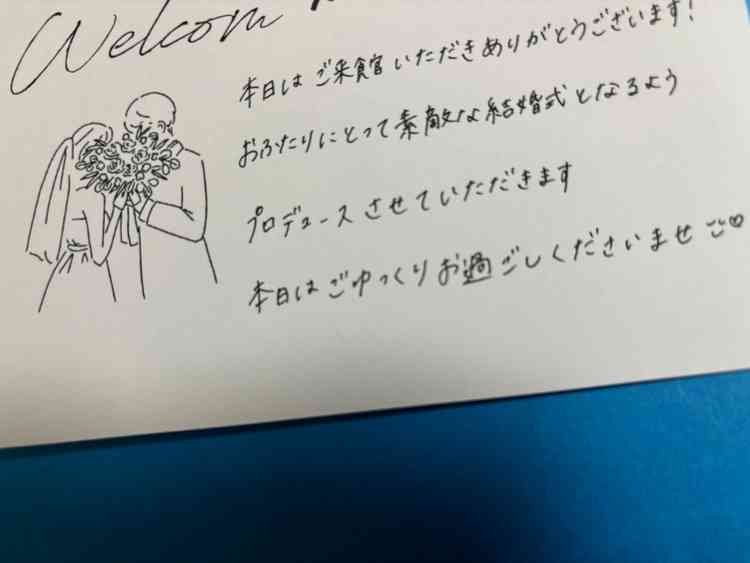 Welcom
本日は ご来館いただきありがとうございます!
おふたりにとって素敵な結婚式となるよう
プロデュースさせていただきます
本日はごゆっくりお過ごしくださいませ